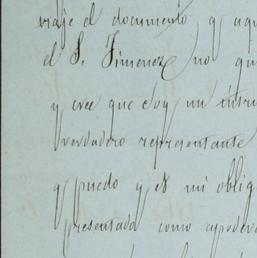 viaje el documento y aqu
el S. Jimenez no qu
y cree que soy un instru
verdadero representante
y puedo y es mi oblig
presentada como apodera